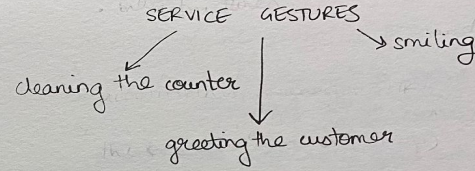 SERVICE GESTURES
smiling
cleaning the counter
greeting the customer